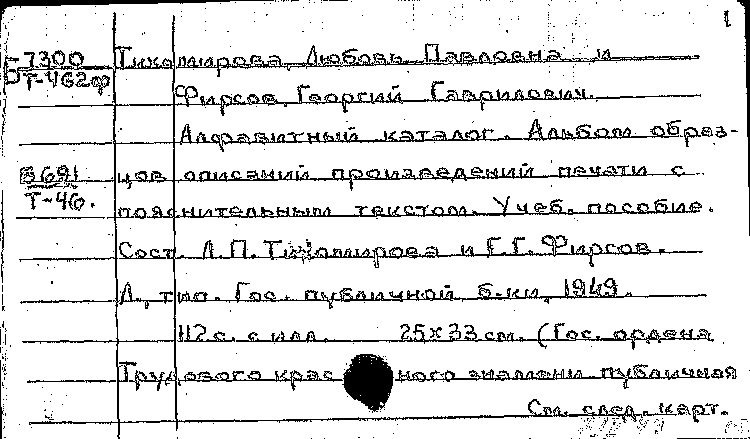 1
Б 7300
Т-462ф
Тихомирова, Любовь Павловна и
Фирсов, Георгий Гаврилович.
Алфавитный каталог. Альбом образ-
3691
Т-46.
цов описаний произведений печати с
пояснительным текстом. Учеб. пособие.
Сост. Л.П. Тихомирова и Г.Г. Фирсов.
Л., тип. Гос. публичной б-ки, 1949.
112 с. с илл. 25х33 см. (Гос. ордена
Трудового крас ного знамени публичная
См. след. карт.